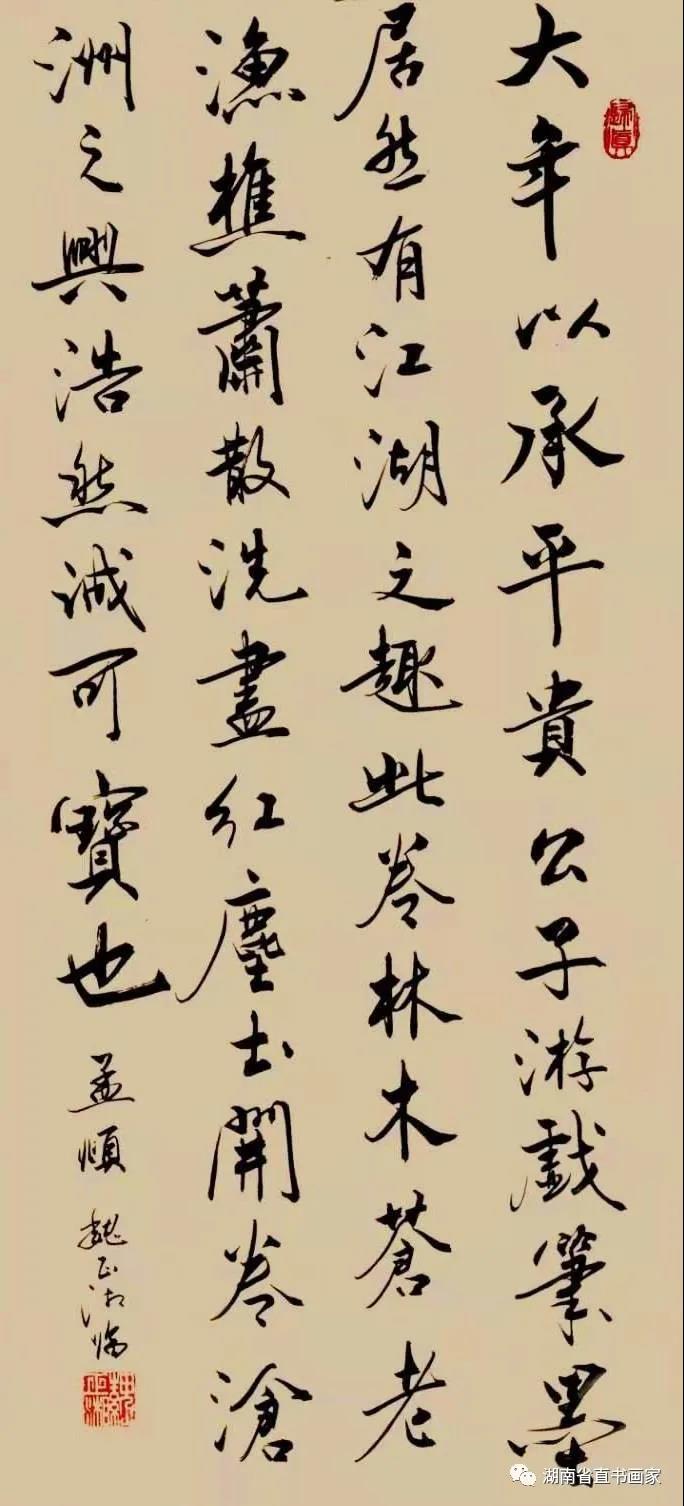 大年以承平貴公子游戲筆墨
居然有江湖之趣此卷林木蒼老
漁樵蕭散洗盡紅塵土開卷滄
洲之興浩然誠可寶也
孟頫
魏正湘臨
湖南省直书画家